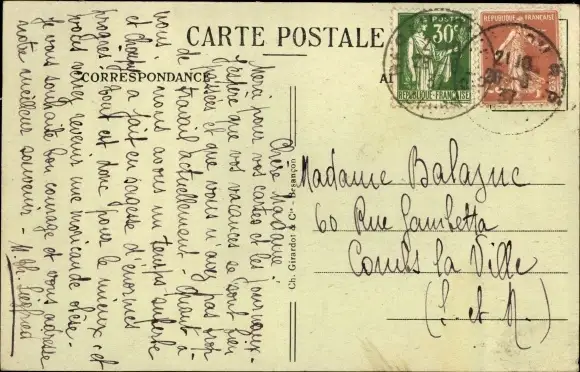 CARTE POSTALE
CORRESPONDANCE
Chère Madame,
Merci pour vos cartes et les journaux.
J'espère que vos vacances se sont bien
passées et que vous n'avez pas trop
de travail actuellement. Quant à
nous, nous avons un temps superbe
et a fait en sagesse d'énormes
progrès. Tout est donc pour le mieux, et
vous verrez revenir une
Je vous souhaite bon courage et vous adresse
notre meilleur souvenir.
M. Th.
Ch. Girardot & Cie, Besançon
POSTES
30c
REPUBLIQUE FRANÇAISE
REPUBLIQUE FRANÇAISE
21 10
37
Madame Balazuc
60 Rue Gambetta
Combs la Ville
(S. et M.)